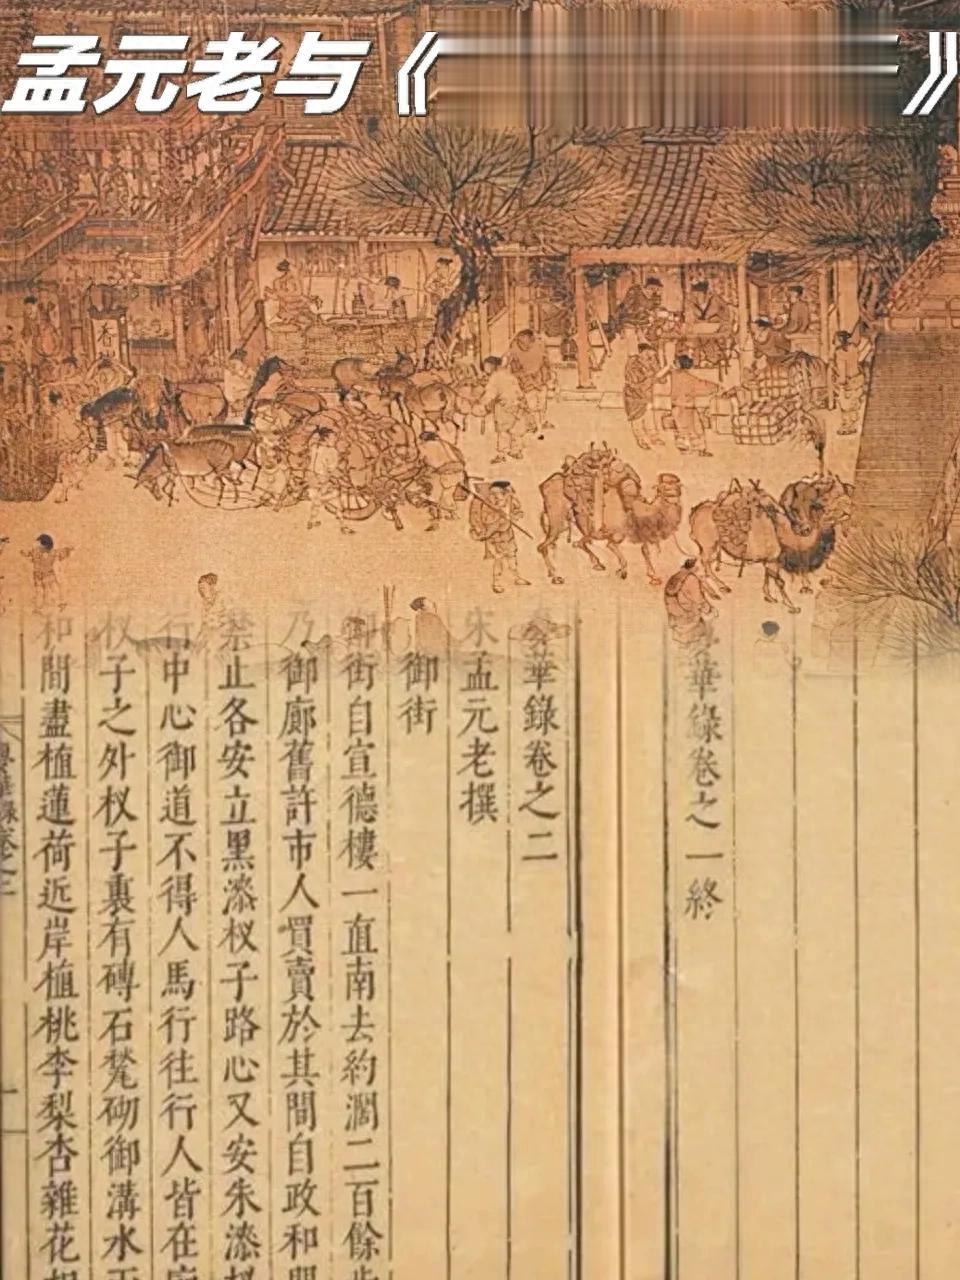 孟元老与《 》
華錄卷之一終
華錄卷之二
宋孟元老撰
御街
御街自宣德樓一直南去約濶二百餘步
乃御廊舊許市人買賣於其間自政和間
禁止各安立黑漆杈子路心又安朱漆杈
行中心御道不得人馬行往行人皆在廊
杈子之外杈子裏有磚石甃砌御溝水
和間盡植蓮荷近岸植桃李梨杏雜花相